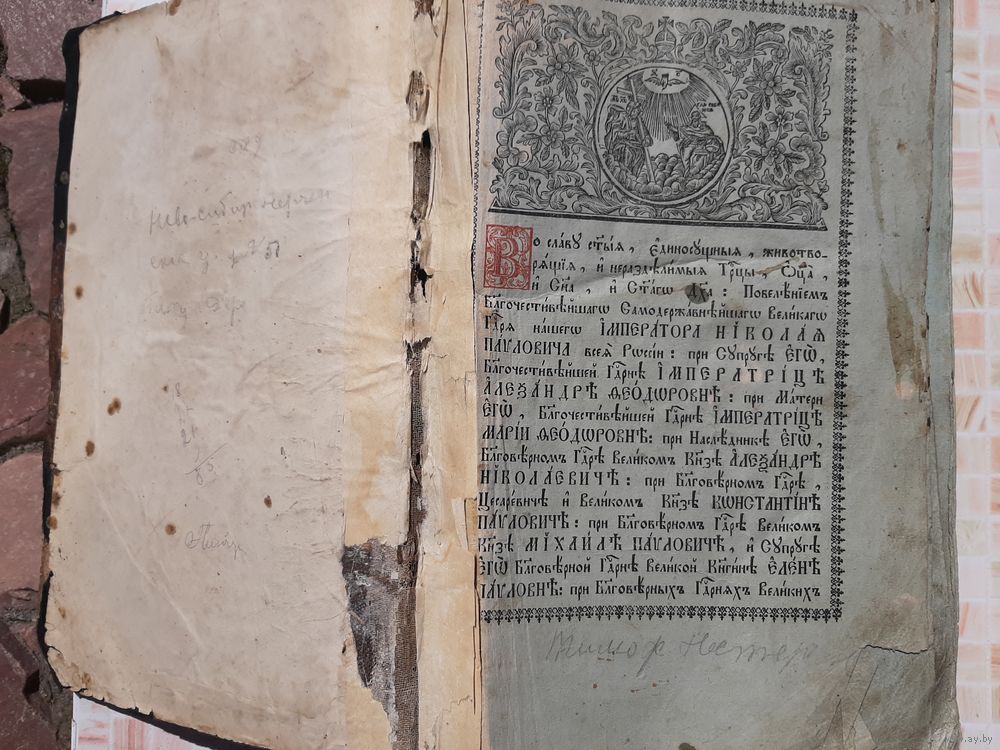 Во сла́ву ст҃ы́я, є҆диносꙋ́щныѧ, животво-
рѧ́щїѧ, и҆ нераздѣ́лимыѧ Трⷪ҇цы, Ѻ҆ц҃а̀,
и҆ Сн҃а, и҆ Ст҃а́гѡ Дх҃а: Повелѣ́нїемъ
Бл҃гочести́вѣйшагѡ Самодержа́внѣйшагѡ Вели́кагѡ
Гдⷭ҇рѧ на́шегѡ І҆МПЕРА́ТОРА НІКОЛА́Ѧ
ПА́ѴЛОВИЧА всеѧ̀ Рѡссі́и: при Сꙋпрꙋ́гѣ Є҆ГѠ̀,
Бл҃гочести́вѣйшей Гдⷭ҇рнѣ І҆МПЕРАТРІ́ЦѢ
А҆ЛЕѮА́НДРѢ ѲЕО́ДѠРОВНѢ: при Ма́тери
Є҆ГѠ̀, Бл҃гочести́вѣйшей Гдⷭ҇рнѣ І҆МПЕРАТРІ́ЦѢ
МАРІ́И ѲЕО́ДѠРОВНѢ: при Наслѣ́дникѣ Є҆ГѠ̀,
Бл҃говѣ́рномъ Гдⷭ҇рѣ Вели́комъ Кнѧ҃зѣ А҆ЛЕѮА́НДРѢ
НІКОЛА́ЕВИЧѢ: при Бл҃говѣ́рномъ Гдⷭ҇рѣ,
Цесаре́вичѣ и҆ Вели́комъ Кнѧ҃зѣ КѠНСТАНТІ́НѢ
ПА́ѴЛОВИЧѢ: при Бл҃говѣ́рномъ Гдⷭ҇рѣ Вели́комъ
Кнѧ҃зѣ МІХАИ́ЛѢ ПА́ѴЛОВИЧѢ, и҆ Сꙋпрꙋ́гѣ
Є҆ГѠ̀ Бл҃говѣ́рной Гдⷭ҇рнѣ Вели́кой Кнѧги́нѣ Є҆ЛЕ́НѢ
ПА́ѴЛОВНѢ: при Бл҃говѣ́рныхъ Гдⷭ҇рнѧхъ Вели́кихъ
ay.by